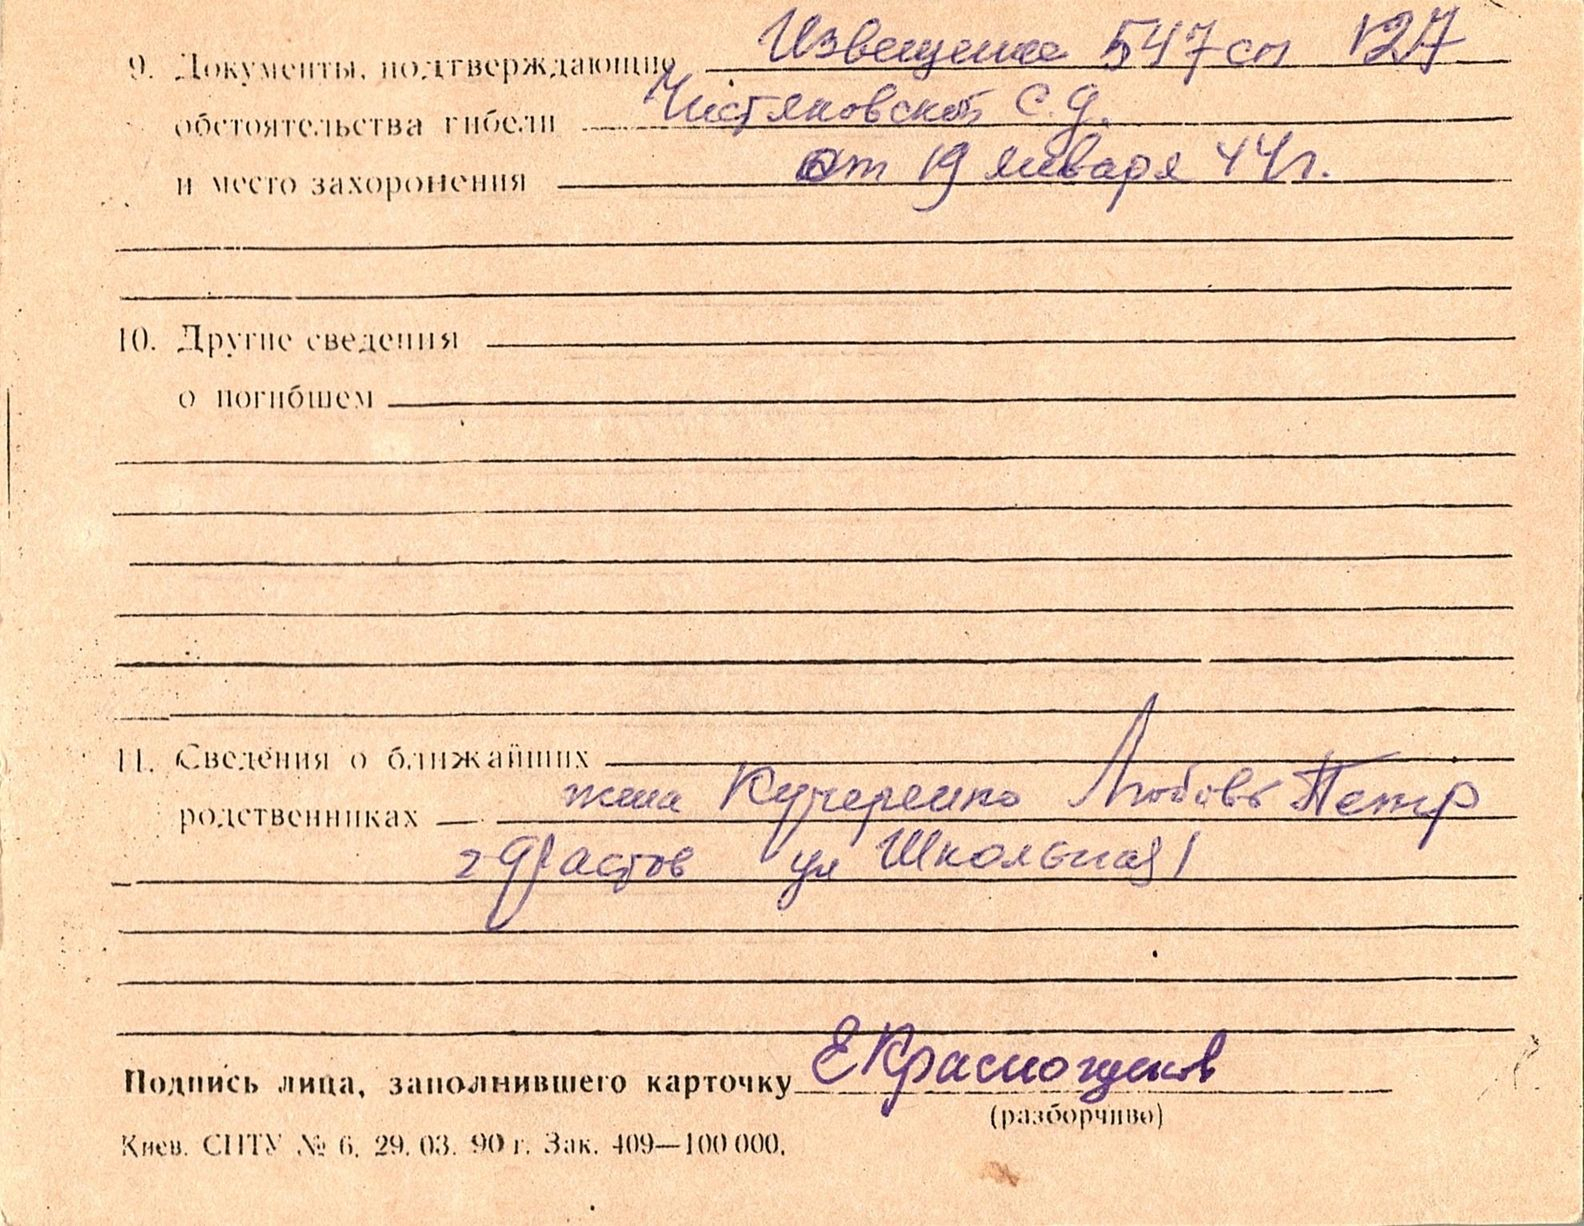 9. Документы, подтверждающие Извещение 547 сп 127
обстоятельства гибели Чистяковской с.д.
и место захоронения от 19 января 44 г.
10. Другие сведения
о погибшем
11. Сведения о ближайших
родственниках жена Кучеренко Любовь Петр
г Фастов ул Школьная 1
Подпись лица, заполнившего карточку ЕКрасногщеков
(разборчиво)
Киев. СПТУ № 6. 29. 03. 90 г. Зак. 409—100 000.